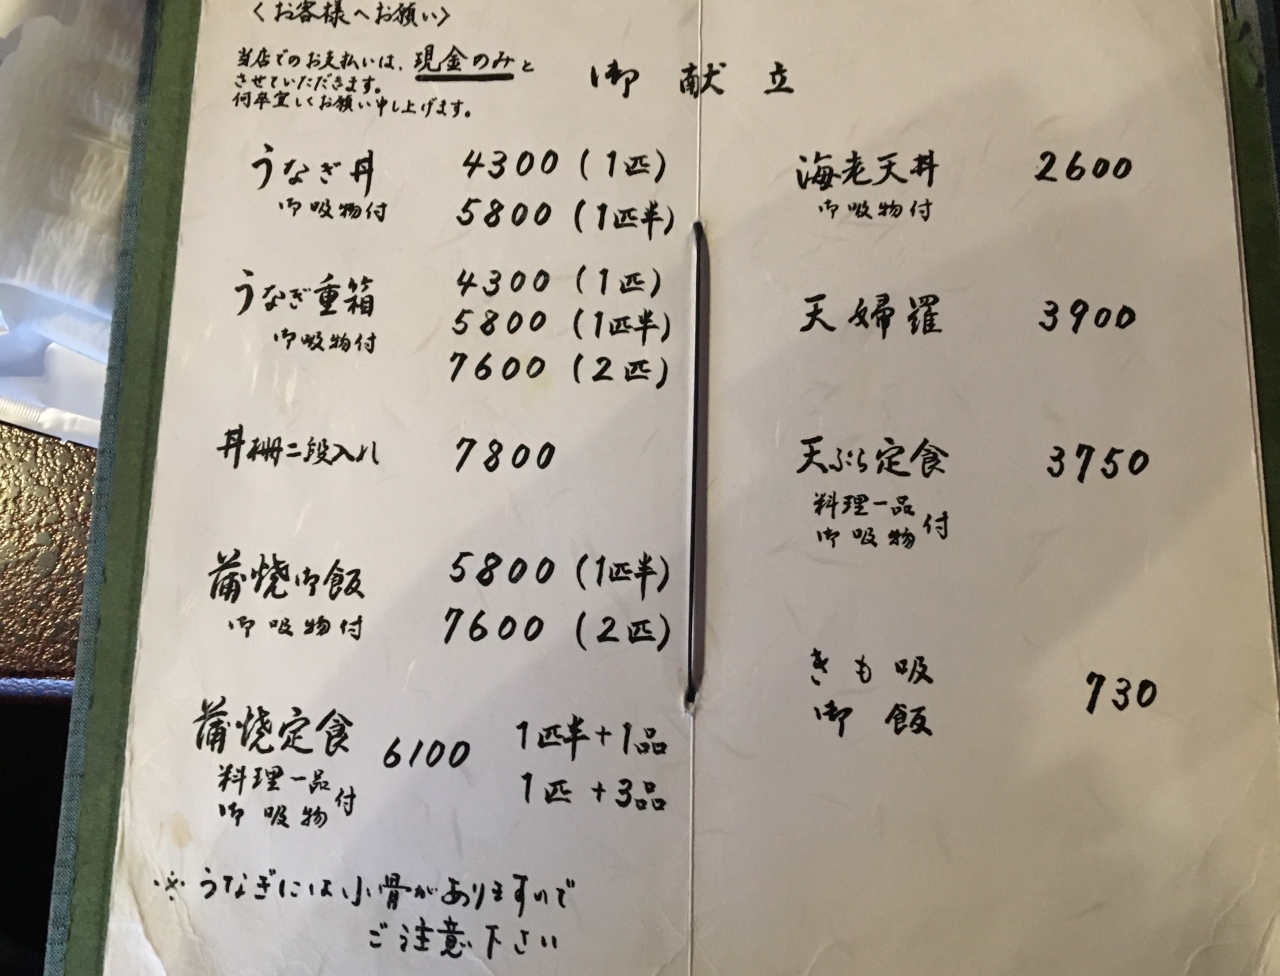 〈お客様へお願い〉
当店でのお支払いは、現金のみと
させていただきます。
何卒宜しくお願い申し上げます。
御献立
うなぎ丼 4300 (1匹)
御吸物付 5800 (1匹半)
うなぎ重箱 4300 (1匹)
御吸物付 5800 (1匹半)
7600 (2匹)
丼柵二段入れ 7800
蒲焼御飯 5800 (1匹半)
御吸物付 7600 (2匹)
蒲焼定食 6100 1匹半+1品
料理一品 1匹+3品
御吸物付
※うなぎには小骨がありますので
ご注意下さい
海老天丼 2600
御吸物付
天婦羅 3900
天ぷら定食 3750
料理一品
御吸物付
きも吸 730
御飯